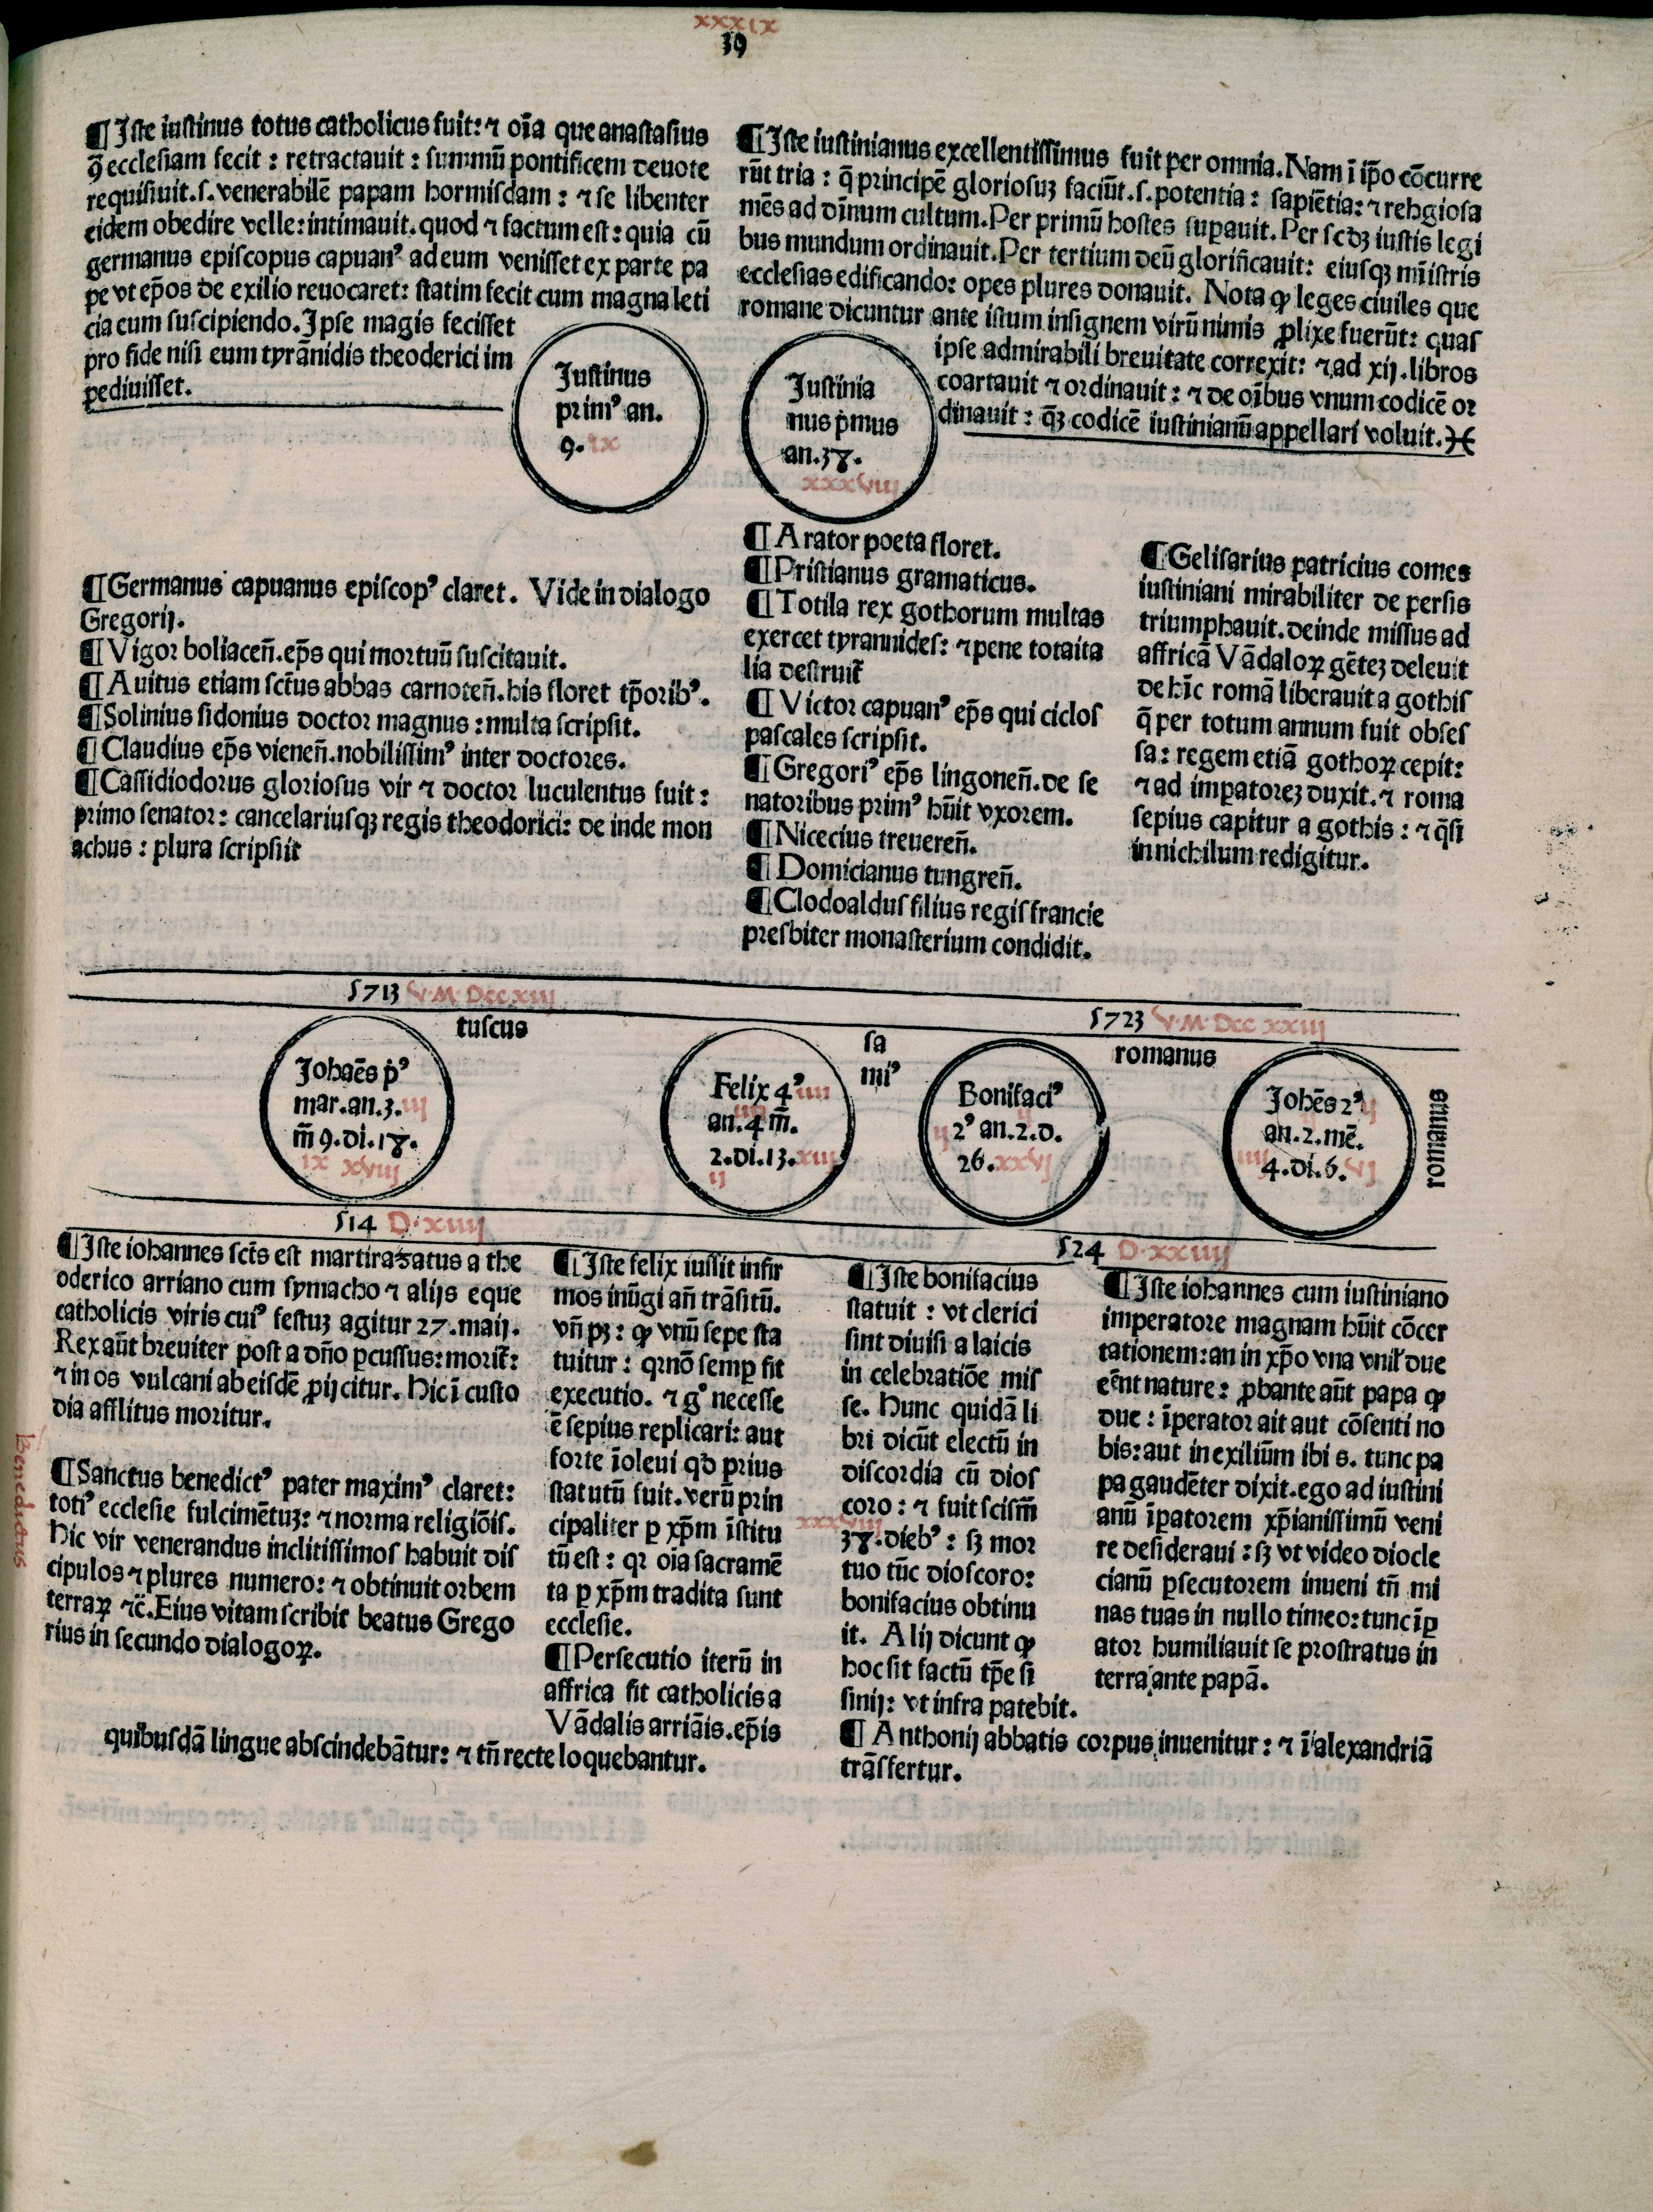 xxxix
39
¶Iste iustinus totus catholicus fuit: ⁊ oīa que anastasius
ꝯ ecclesiam fecit : retractauit : summū pontificem deuote
requisiuit.s.venerabilē papam hormisdam : ⁊ se libenter
eidem obedire velle: intimauit. quod ⁊ factum est: quia cū
germanus episcopus capuanꝰ ad eum venisset ex parte pa
pe vt ep̄os de exilio reuocaret: statim fecit cum magna leti
cia eum suscipiendo. Ipse magis fecisset
pro fide nisi eum tyrānidis theoderici im
pediuisset.
Iustinus
primꝰ an.
9. ix
¶Iste iustinianus excellentissimus fuit per omnia. Nam ī ip̄o cōcurre
rūt tria : q̄ principē gloriosuꝫ faciūt.s.potentia: sapiētia: ⁊ religiosa
mēs ad dīnum cultum. Per primū hostes suꝑauit. Per scd̄ꝫ iustis legi
bus mundum ordinauit. Per tertium deū glorificauit: eiusqꝫ mīistris
ecclesias edificando: opes plures donauit. Nota ꝙ leges ciuiles que
romane dicuntur ante istum insignem virū nimis ꝓlixe fuerūt: quas
ipse admirabili breuitate correxit: ⁊ ad xij.libros
coartauit ⁊ ordinauit : ⁊ de oībus vnum codicē or
dinauit : q̄ꝫ codicē iustinianū appellari voluit.
Iustinia
nus pmus
an.38.
xxxviij
¶Germanus capuanus episcopꝰ claret. Vide in dialogo
Gregorij.
¶Vigor boliaceñ.ep̄s qui mortuū suscitauit.
¶Auitus etiam sctūs abbas carnoteñ.his floret tp̄oribꝰ.
¶Solinius sidonius doctor magnus : multa scripsit.
¶Claudius ep̄s vieneñ.nobilissimꝰ inter doctores.
¶Cassidiodorus gloriosus vir ⁊ doctor luculentus fuit :
primo senator: cancelariusqꝫ regis theodorici: de inde mon
achus : plura scripsiit
¶Arator poeta floret.
¶Pristianus gramaticus.
¶Totila rex gothorum multas
exercet tyrannides: ⁊ pene tota ita
lia destruit̄
¶Victor capuanꝰ ep̄s qui ciclos
pascales scripsit.
¶Gregoriꝰ ep̄s lingoneñ.de se
natoribus primꝰ hūit vxorem.
¶Nicecius treuereñ.
¶Domicianus tungreñ.
¶Clodoaldus filius regis francie
presbiter monasterium condidit.
¶Gelisarius patricius comes
iustiniani mirabiliter de persis
triumphauit. deinde missus ad
affricā Vādaloꝝ gēteꝫ deleuit
de hīc romā liberauit a gothis
q̄ per totum annum fuit obses
sa: regem etiā gothoꝝ cepit:
⁊ ad imꝑatoreꝫ duxit. ⁊ roma
sepius capitur a gothis : ⁊ q̄si
in nichilum redigitur.
5713 V.M.DCCxiij
5723 V.M.DCC xxiij
tuscus
Johāēs pꝰ
mar.an.3.iij
m̄ 9.di.18.
ix xviij
Felix 4ꝰ iiij
iiij
an.4 m̄.
2.di.13.xiij
ij
sa
miꝰ
Bonifaciꝰ
ij
ij 2ꝰ an.2.d.
26.xxvj
romanus
Johēs 2ꝰ ij
an.2.mē.
iiij 4.di.6.vj
romanus
514 D.xiiij
524 D.xxiiij
¶Iste iohannes sct̄s est martirazatus a the
oderico arriano cum symacho ⁊ alijs eque
catholicis viris cuiꝰ festuꝫ agitur 27.maij.
Rex aūt breuiter post a dño ꝑcussus: morit̄:
⁊ in os vulcani ab eisdē ꝓijcitur. Hic ī custo
dia afflitus moritur.
Benedictus
¶Sanctus benedictꝰ pater maximꝰ claret:
totiꝰ ecclesie fulcimētuꝫ: ⁊ norma religiōis.
Hic vir venerandus inclitissimos habuit dis
cipulos ⁊ plures numero: ⁊ obtinuit orbem
terraꝝ ⁊c̄. Eius vitam scribit beatus Grego
rius in secundo dialogoꝝ.
¶Iste felix iussit infir
mos inūgi añ trāsitū.
vñ pꝫ : ꝙ vnū sepe sta
tuitur : qr nō semꝑ fit
executio. ⁊ gͦ necesse
ē sepius replicari: aut
forte īoleui qd̄ prius
statutū fuit. verū prin
cipaliter ꝑ xp̄m īstitu
tū est : qr oīa sacramē
ta ꝑ xp̄m tradita sunt
ecclesie.
¶Persecutio iterū in
affrica fit catholicis a
Vādalis arriāis. ep̄is
quibusdā lingue abscindebātur: ⁊ tñ recte loquebantur.
¶Iste bonifacius
statuit : vt clerici
sint diuisi a laicis
in celebratiōe mis
se. Hunc quidā li
bri dicūt electū in
discordia cū dios
coro : ⁊ fuit scism̄
xxxviij
38.diebꝰ : sꝫ mor
tuo tūc dioscoro:
bonifacius obtinu
it. Alij dicunt ꝙ
hoc sit factū tp̄e si
sinij: vt infra patebit.
¶Anthonij abbatis corpus inuenitur : ⁊ ī alexandriā
trāsfertur.
¶Iste iohannes cum iustiniano
imperatore magnam hūit cōcer
tationem: an in xp̄o vna vnil̄ due
eēnt nature : ꝓbante aūt papa ꝙ
due : īperator ait aut cōsenti no
bis: aut in exilium ibis. tunc pa
pa gaudēter dixit. ego ad iustini
anū īꝑatorem xp̄ianissimū veni
re desideraui : sꝫ vt video diocle
cianū ꝑsecutorem inueni tñ mi
nas tuas in nullo timeo: tunc īꝑ
ator humiliauit se prostratus in
terra ante papā.